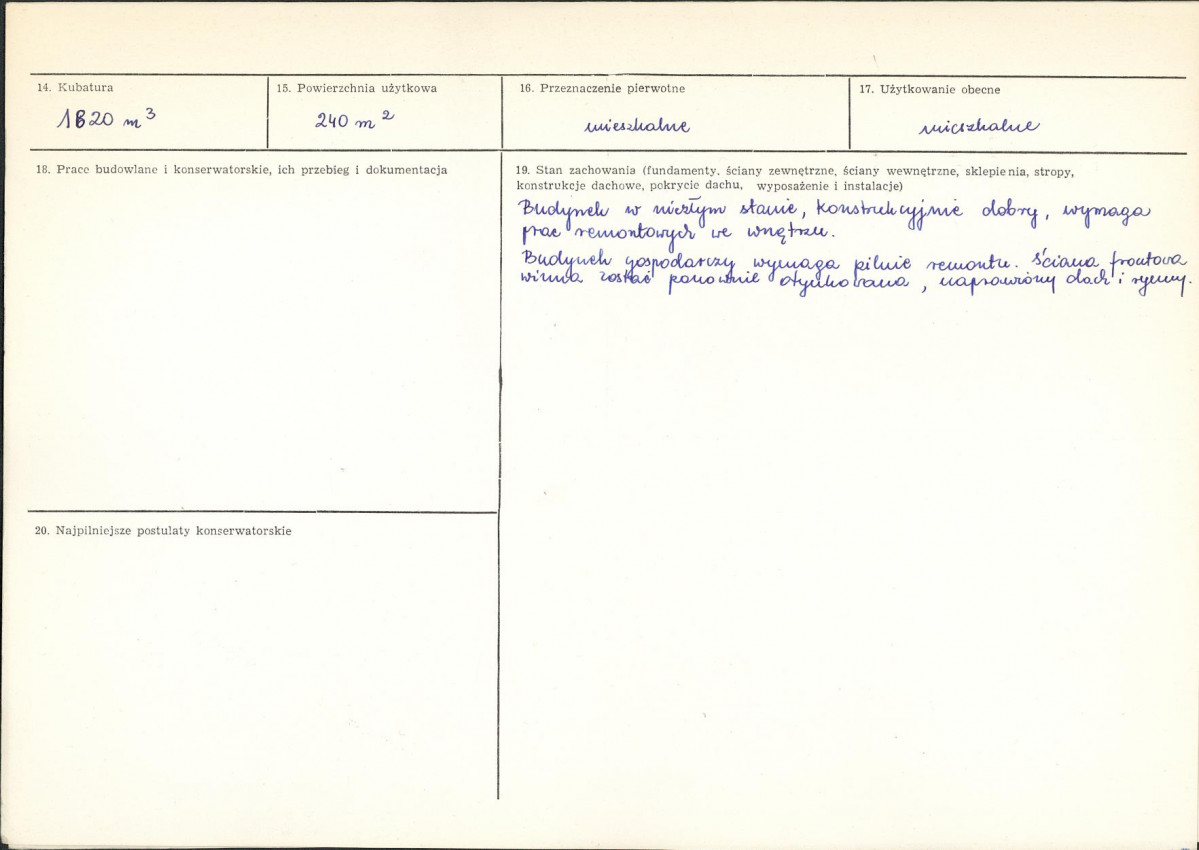 14. Kubatura
1620 m³
15. Powierzchnia użytkowa
240 m²
16. Przeznaczenie pierwotne
mieszkalne
17. Użytkowanie obecne
mieszkalne
18. Prace budowlane i konserwatorskie, ich przebieg i dokumentacja
19. Stan zachowania (fundamenty, ściany zewnętrzne, ściany wewnętrzne, sklepienia, stropy,
konstrukcje dachowe, pokrycie dachu, wyposażenie i instalacje)
Budynek w niezłym stanie, konstrukcyjnie dobry, wymaga
prac remontowych we wnętrzu.
Budynek gospodarczy wymaga pilnie remontu. Ściana frontowa
winna zostać ponownie otynkowana, naprawiony dach i rynny.
20. Najpilniejsze postulaty konserwatorskie